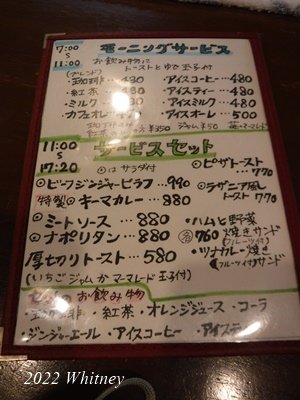 7:00
モーニングサービス
11:00
お飲み物に
トーストとゆで玉子付
(ブレンド)
・珈琲…480
・アイスコーヒー…480
・紅茶…480
・アイスティー…480
・ミルク…480
・アイスミルク…480
・カフェオレ
・アイスオーレ…500
¥350 ジャム¥50
11:00
サービスセット
17:20
◎はサラダ付
・ピザトースト 770
◎ビーフジンジャーピラフ…990
◎ラザニア風トースト 770
特製 ◎キーマカレー…880
◎ミートソース…880
・ハムと野菜
◎ナポリタン…880
各760 焼きサンド
(フルーツ付)
厚切りトースト…580
・ツナカレー焼き
(フルーツ付)サンド
(いちごジャムかマーマレード 玉子付)
お飲み物
・紅茶・オレンジジュース・コーラ
・ジンジャーエール・アイスコーヒー・アイスティー
2022 Whitney